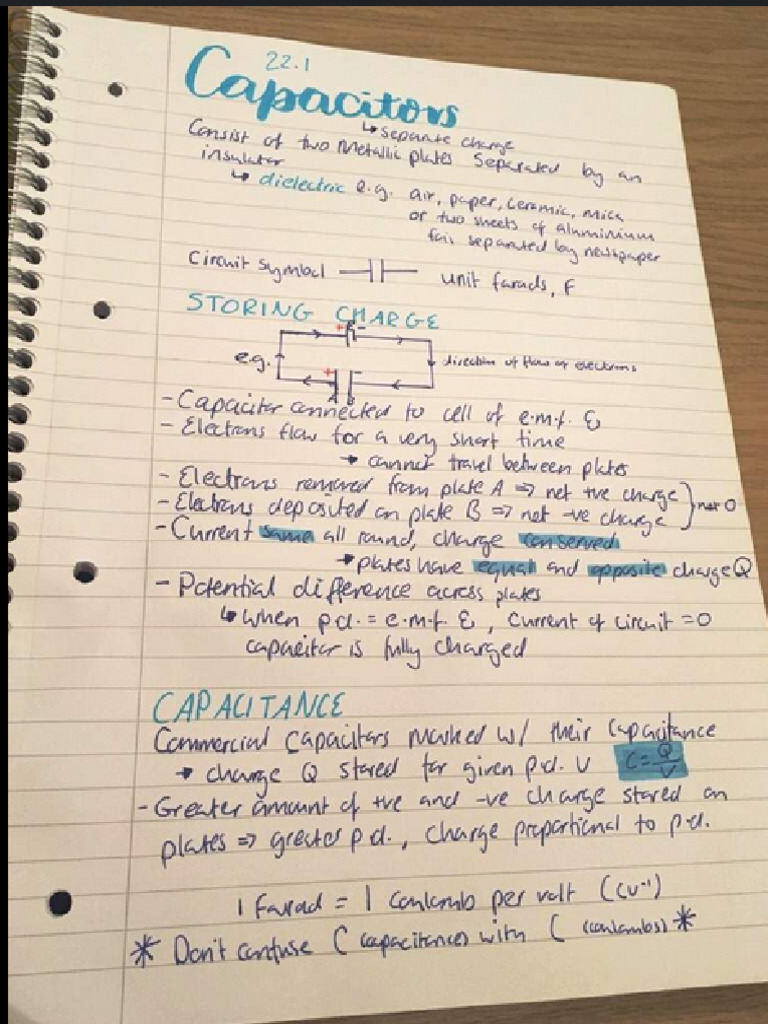 22.1
Capacitors
↳ separate charge
Consist of two metallic plates separated by an
insulator
↳ dielectric e.g. air, paper, ceramic, mica
or two sheets of aluminium
foil separated by newspaper
Circuit symbol unit farads, F
STORING CHARGE
+ -
e.g. direction of flow of electrons
+ -
A B
- Capacitor connected to cell of e.m.f. ε
- Electrons flow for a very short time
→ cannot travel between plates
- Electrons removed from plate A ⇒ net +ve charge
- Electrons deposited on plate B ⇒ net -ve charge } net 0
- Current same all round, charge conserved
→ plates have equal and opposite charge Q
- Potential difference across plates
↳ when p.d. = e.m.f. ε, current of circuit = 0
capacitor is fully charged
CAPACITANCE
Commercial capacitors marked w/ their capacitance
→ charge Q stored for given p.d. V C = Q/V
- Greater amount of +ve and -ve charge stored on
plates ⇒ greater p.d., charge proportional to p.d.
1 Farad = 1 coulomb per volt (CV⁻¹)
* Don't confuse C (capacitance) with C (coulombs) *